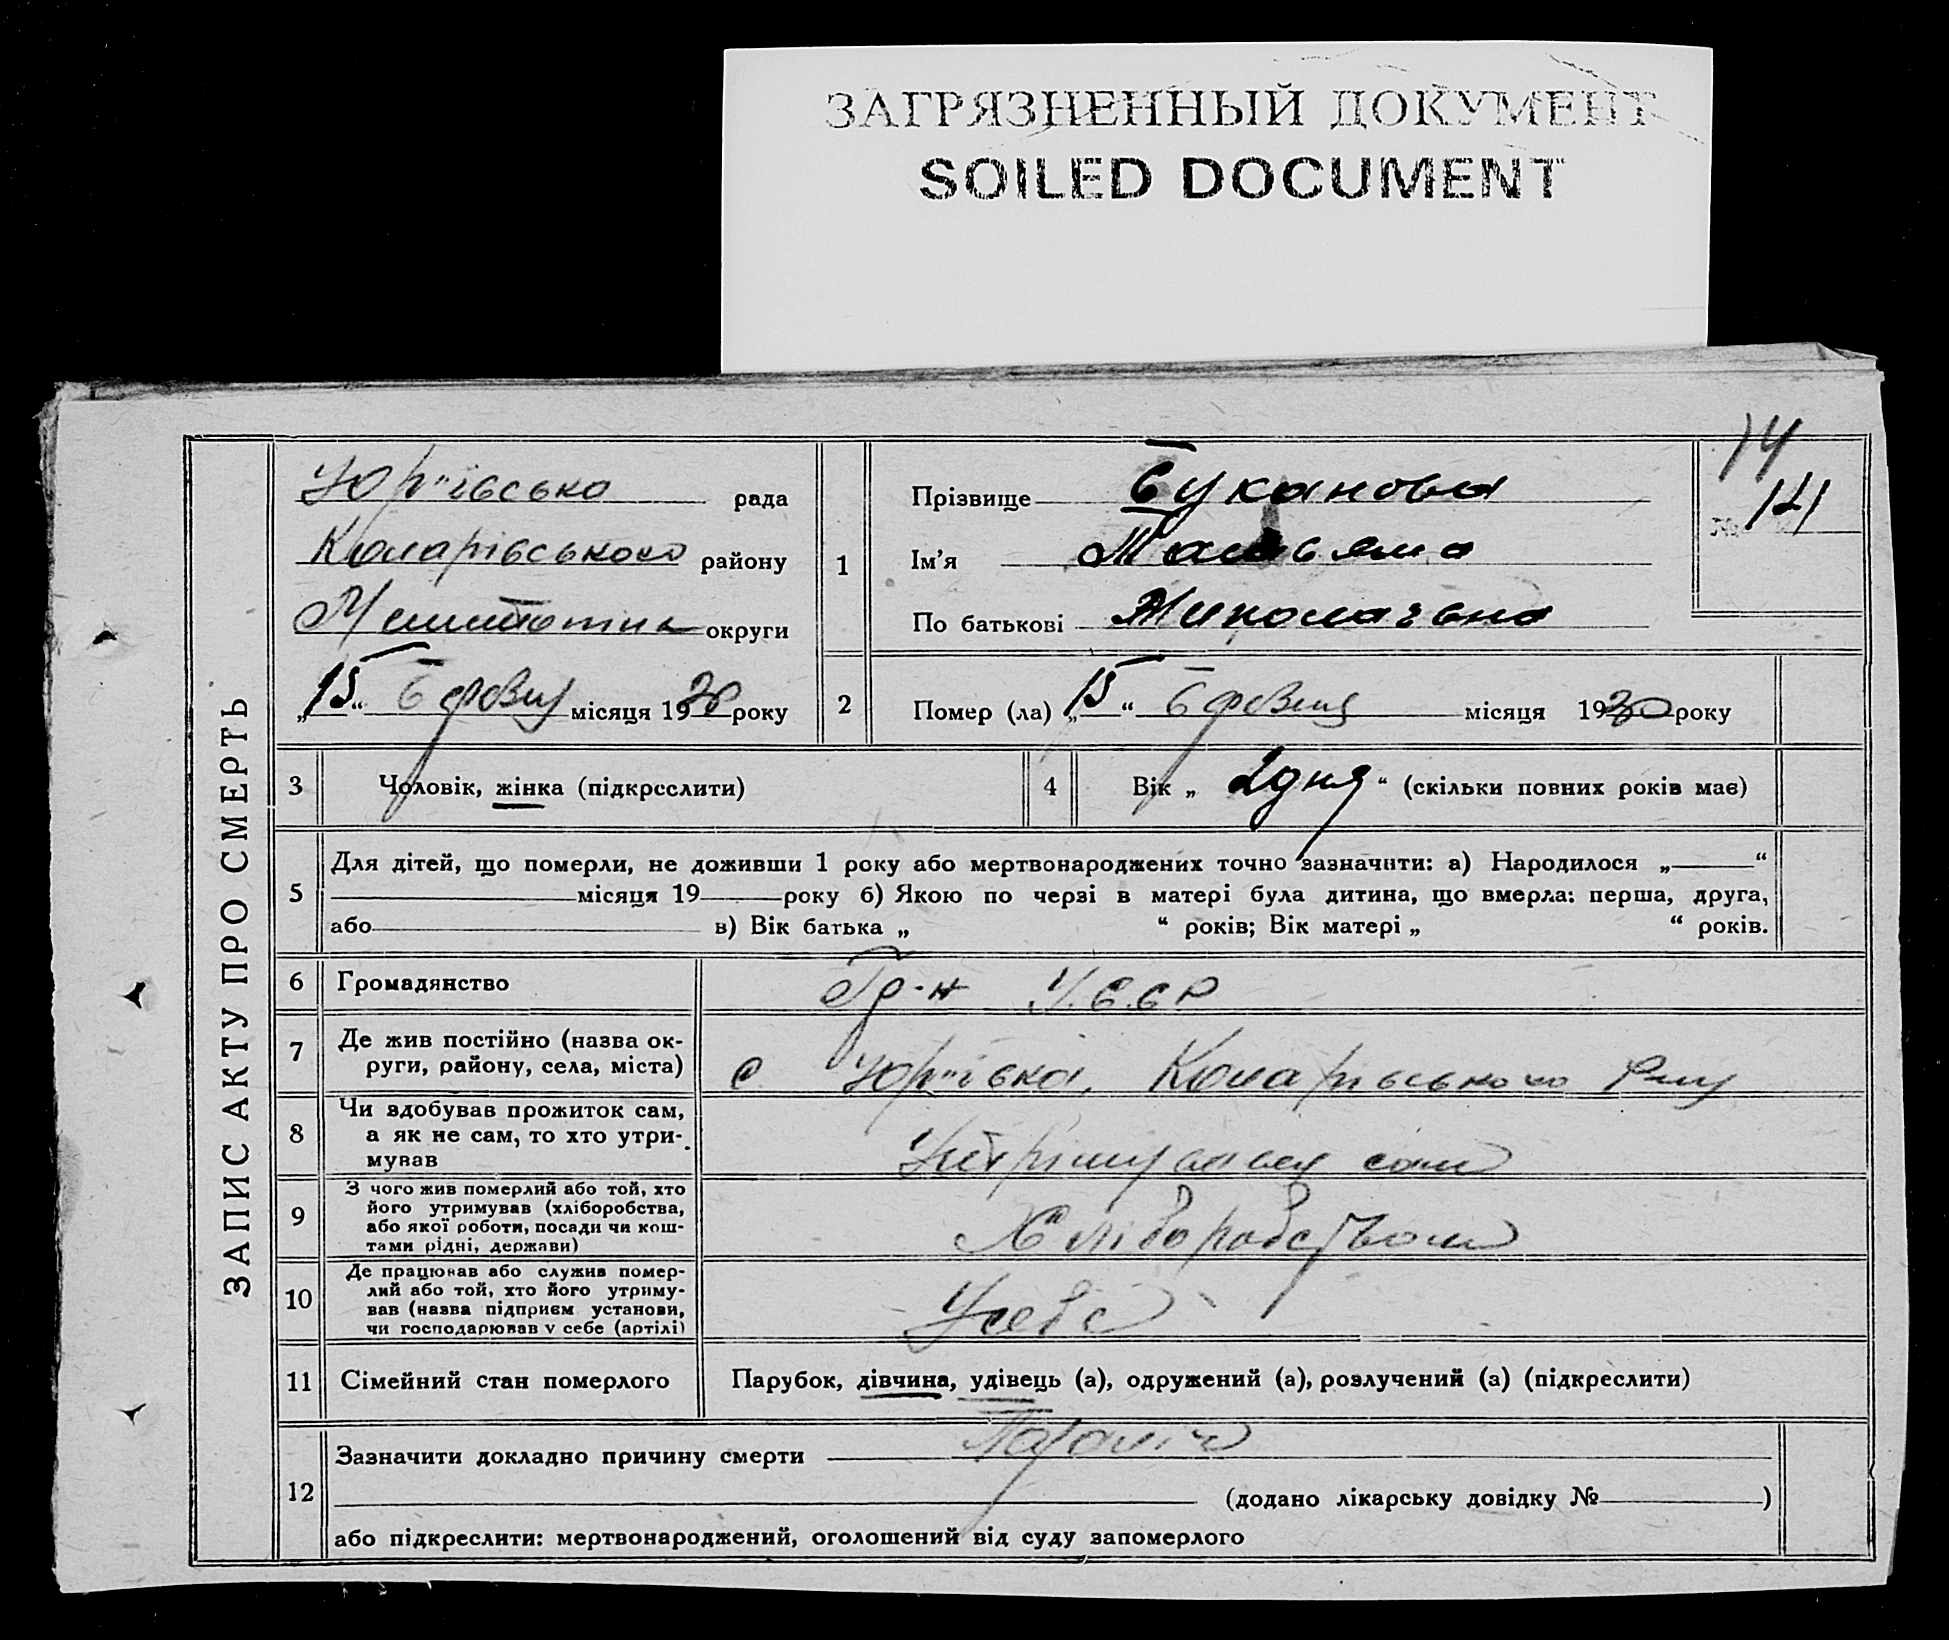 ЗАГРЯЗНЕННЫЙ ДОКУМЕНТ
SOILED DOCUMENT
14
№ 141
ЗАПИС АКТУ ПРО СМЕРТЬ
Юр'ївська рада
Коларівського району
округи
„15“ місяця 1930 року
1
Прізвище Буканова
Ім'я
По батькові Николаевна
2
Помер (ла) „15“ місяця 1930 року
3 Чоловік, жінка (підкреслити)
4 Вік „2 дня“ (скільки повних років має)
5
Для дітей, що померли, не доживши 1 року або мертвонароджених точно зазначити: а) Народилося „ “
місяця 19 року б) Якою по черзі в матері була дитина, що вмерла: перша, друга,
або в) Вік батька „ “ років; Вік матері „ “ років.
6 Громадянство Гр-н У.С.С.Р
7 Де жив постійно (назва ок-
руги, району, села, міста) с Юр'ївка, Коларівського р-ну
8 Чи здобував прожиток сам,
а як не сам, то хто утри-
мував
9 З чого жив померлий або той, хто
його утримував (хліборобства,
або якої роботи, посади чи кош-
тами рідні, держави) Хліборобством
10 Де працював або служив помер-
лий або той, хто його утриму-
вав (назва підприєм установи,
чи господарював у себе (артілі) У себе
11 Сімейний стан померлого Парубок, дівчина, удівець (а), одружений (а), розлучений (а) (підкреслити)
12
Зазначити докладно причину смерти Параліч
(додано лікарську довідку № )
або підкреслити: мертвонароджений, оголошений від суду запомерлого